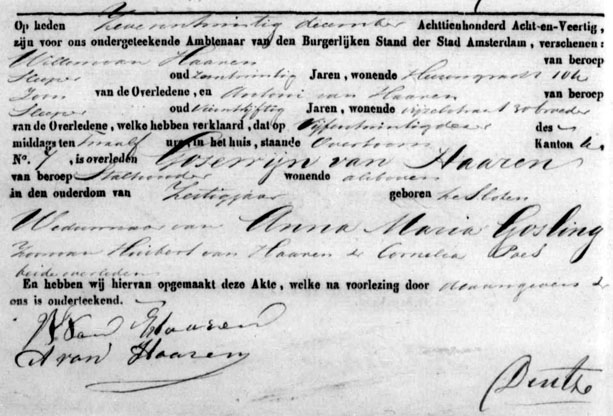 Op heden Zevenentwintig december Achttienhonderd Acht-en-Veertig,
zijn voor ons ondergeteekende Ambtenaar van den Burgerlijken Stand der Stad Amsterdam, verschenen:
Willem van Haaren van beroep
Sleeper oud Jaren, wonende Heerengracht
Zoon van de Overledene, en Antoni van Haaren van beroep
Sleeper oud Jaren, wonende Vijzelstraat Broeder
van de Overledene, welke hebben verklaard, dat op Vijfentwintig dezer des
middags ten twaalf ure, in het huis, staande Overtoom Kanton
No. 7, is overleden Gosewijn van Haaren
van beroep Stalhouder wonende alsboven
in den ouderdom van Zestig jaar geboren te Sloten
Weduwnaar van Anna Maria Gosling
Zoon van Huibert van Haaren & Cornelia Poes
beide overleden
En hebben wij hiervan opgemaakt deze Akte, welke na voorlezing door de aangevers &
ons is onderteekend.
W van Haaren
A van Haaren